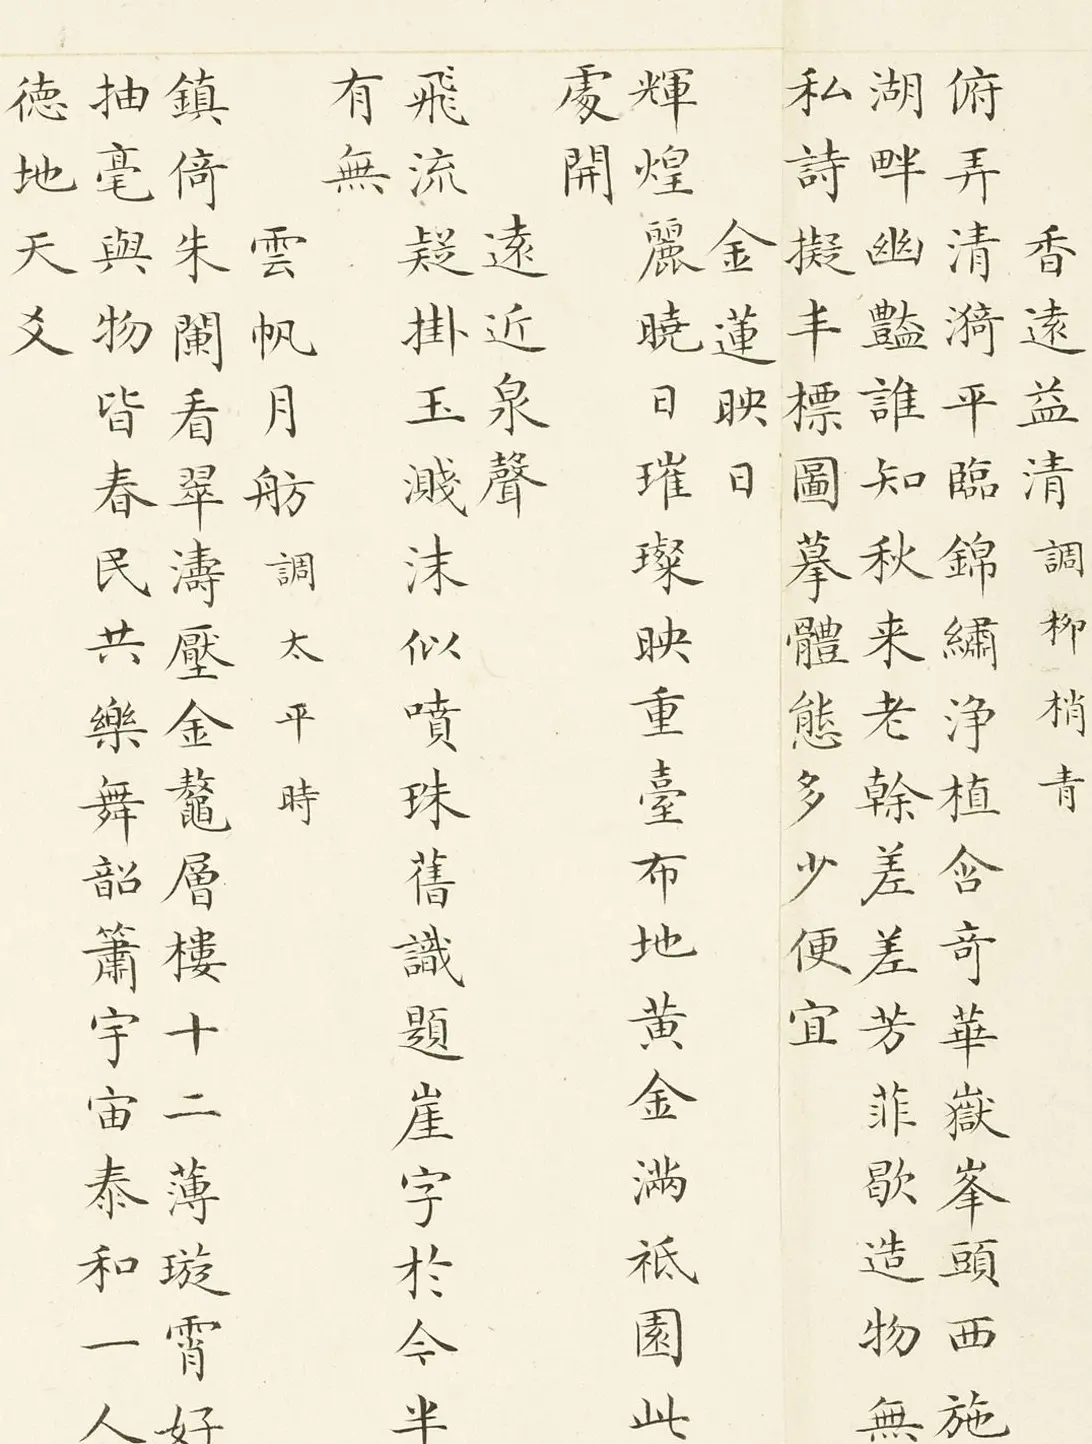 香遠益清調柳梢青
俯弄清漪平臨錦繡淨植含奇華嶽峯頭西施
湖畔幽豔誰知秋来老榦差差芳菲歇造物無
私詩擬丰標圖摹體態多少便宜
金蓮映日
輝煌麗曉日璀璨映重臺布地黃金滿祗園此
處開
遠近泉聲
飛流疑掛玉濺沫似噴珠舊識題崖字於今半
有無
雲帆月舫調太平時
鎮倚朱闌看翠濤壓金鼇層樓十二薄璇霄好
抽毫與物皆春民共樂舞韶簫宇宙泰和一人
德地天爻